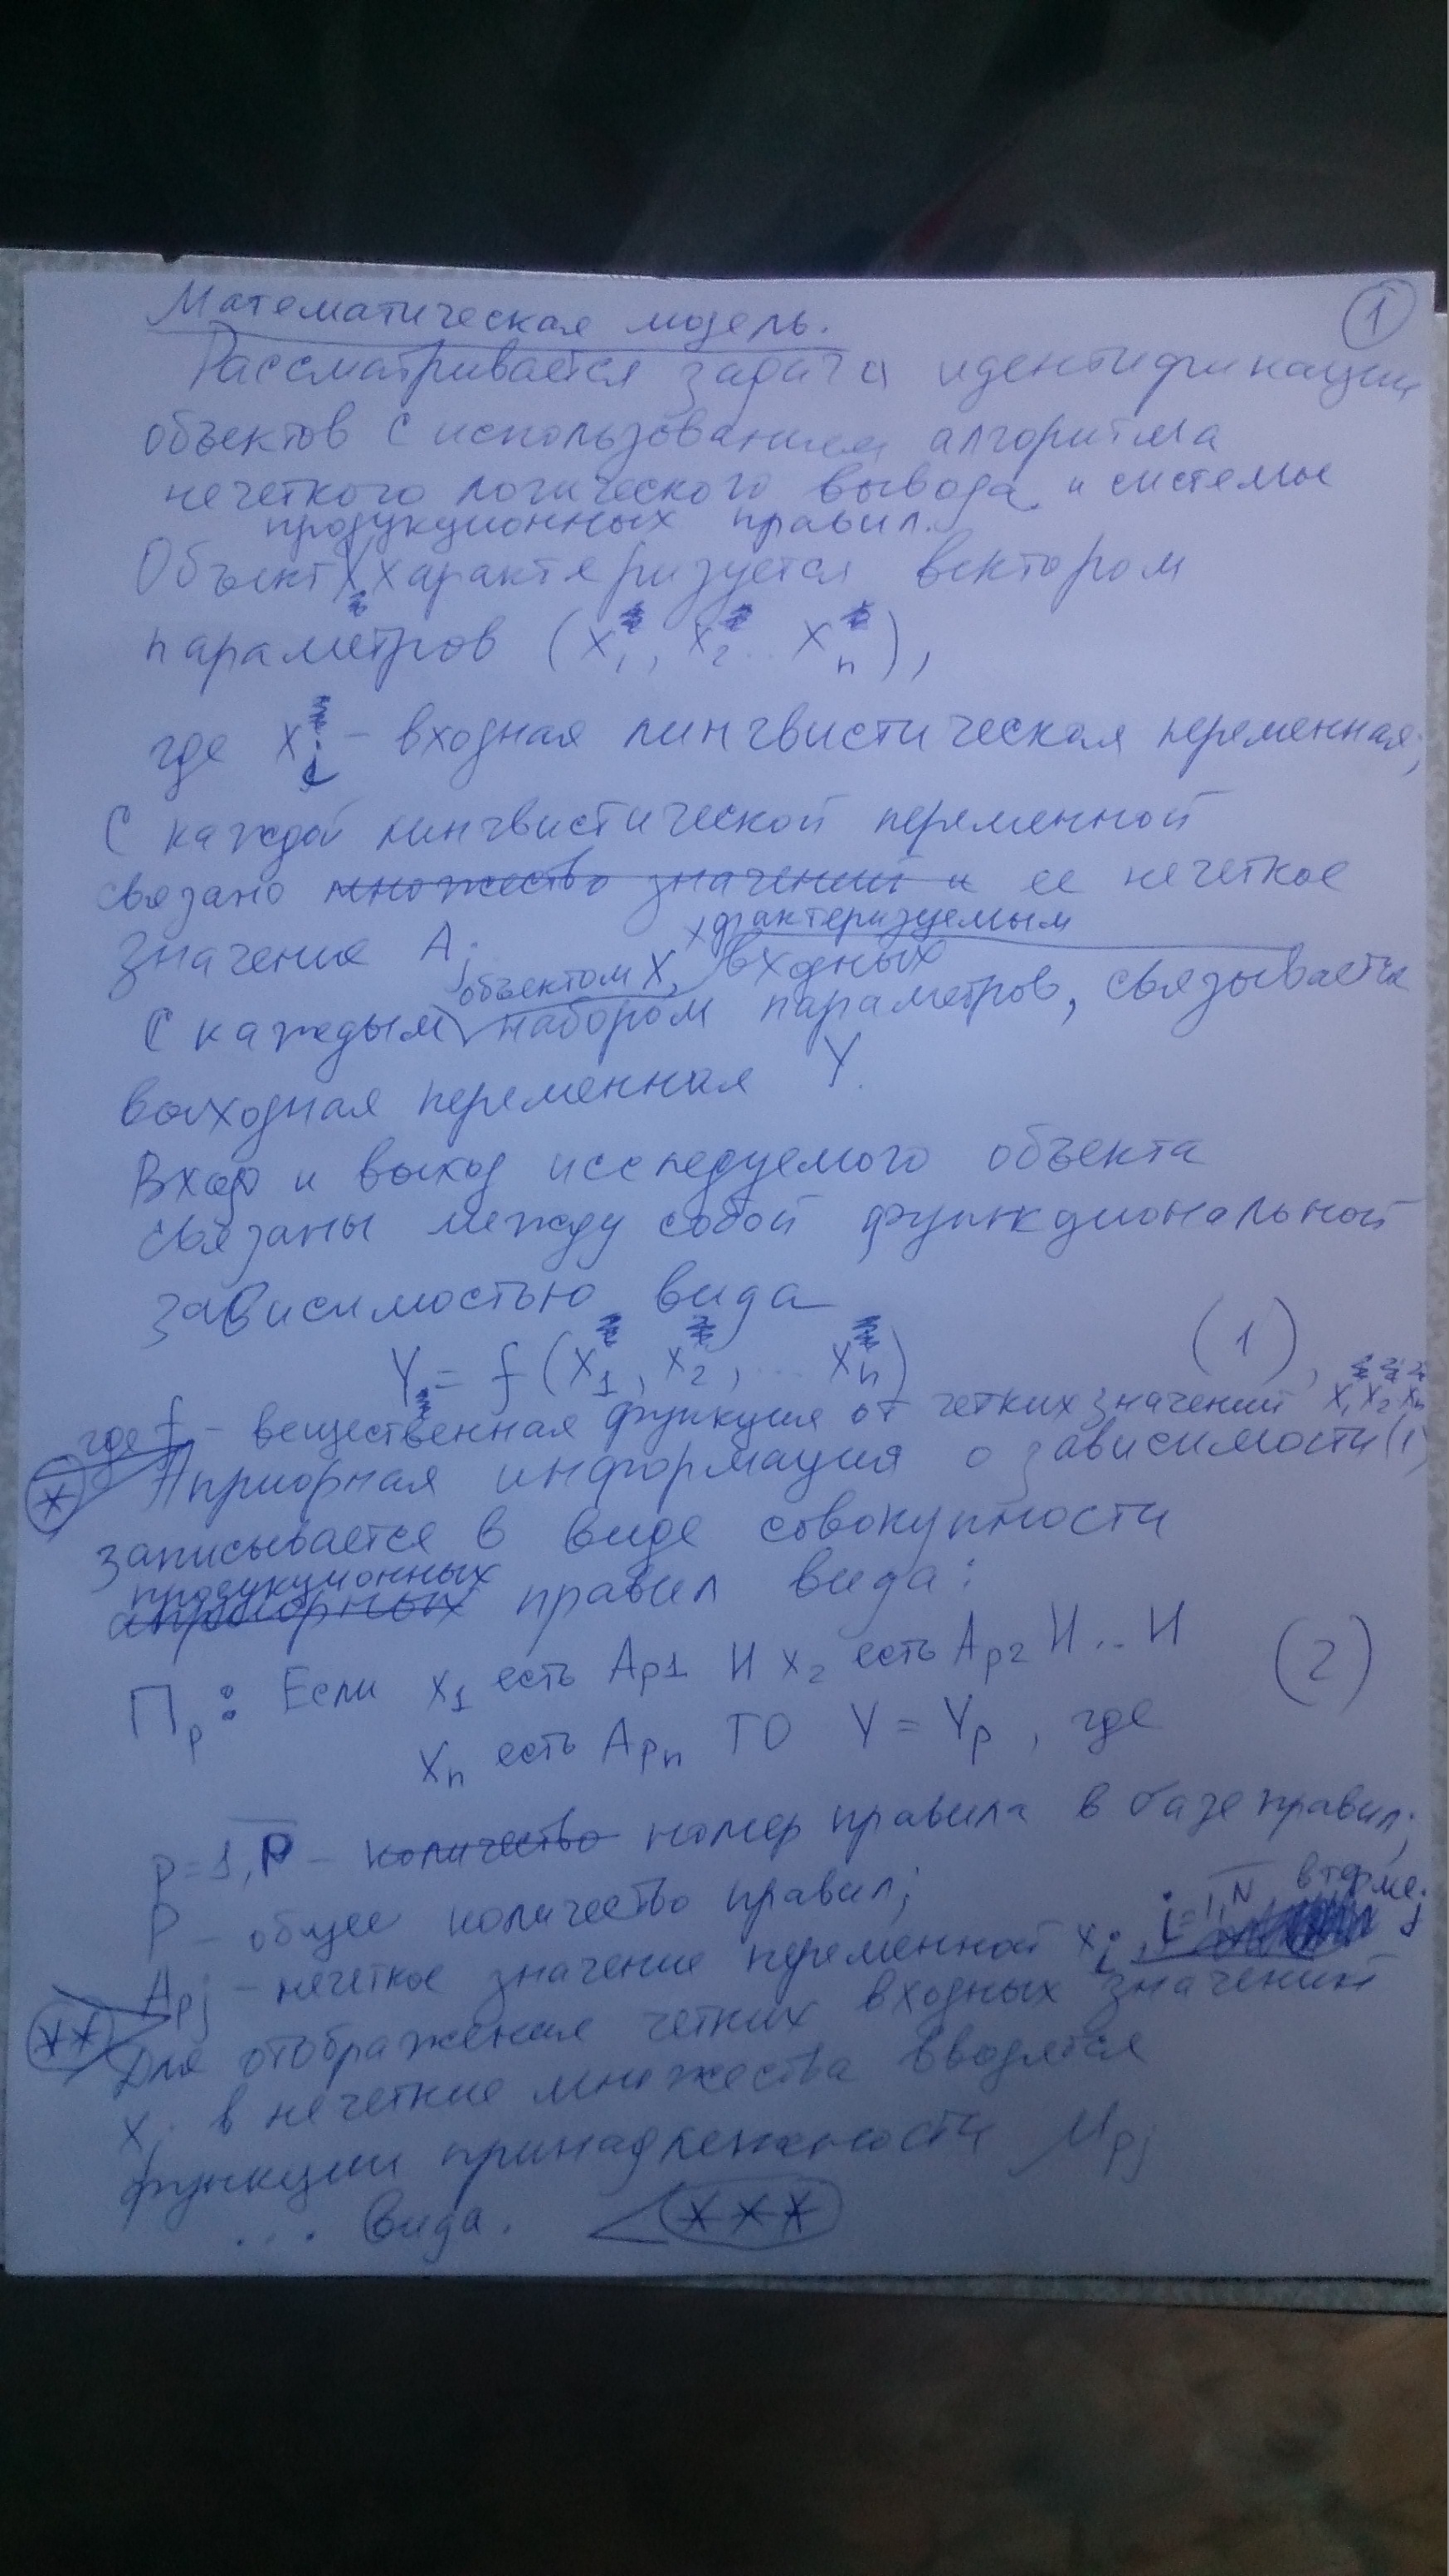 Математическая модель.
1
Рассматривается задача идентификации
объектов с использованием алгоритма
нечеткого логического вывода и системы
продукционных правил.
Объект X характеризуется вектором
параметров (x₁, x₂ .. xₙ),
где xᵢ – входная лингвистическая переменная;
С каждой лингвистической переменной
связано множество значений и ее нечеткое
значение A;
характеризуемым
объектом X, входных
С каждым набором параметров, связывается
выходная переменная Y.
Вход и выход исследуемого объекта
связаны между собой функциональной
зависимостью вида
Y = f (x₁, x₂, ... xₙ) (1),
где f – вещественная функция от четких значений x₁ x₂ xₙ
* Априорная информация о зависимости (1)
записывается в виде совокупности
продукционных
априорных правил вида:
Пₚ: Если x₁ есть Aₚ₁ И x₂ есть Aₚ₂ И .. И (2)
xₙ есть Aₚₙ ТО Y = Yₚ, где
p = 1, P – количество номер правила в базе правил;
P – общее количество правил;
Apj – нечеткое значение переменной xⱼ, j = 1, N
** Для отображения четких входных значений
xⱼ в нечеткие множества вводятся
функции принадлежности μpj
... вида. ***